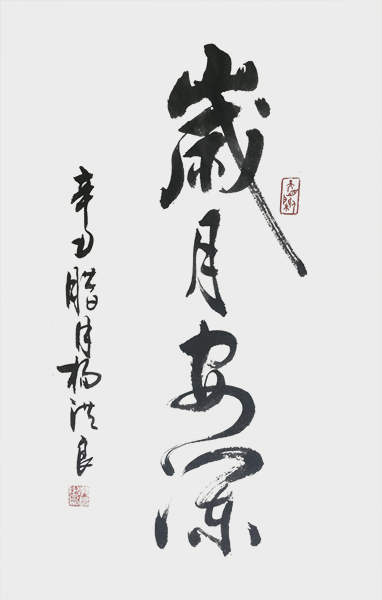 歲月安瀾
辛丑腊月杨洪良